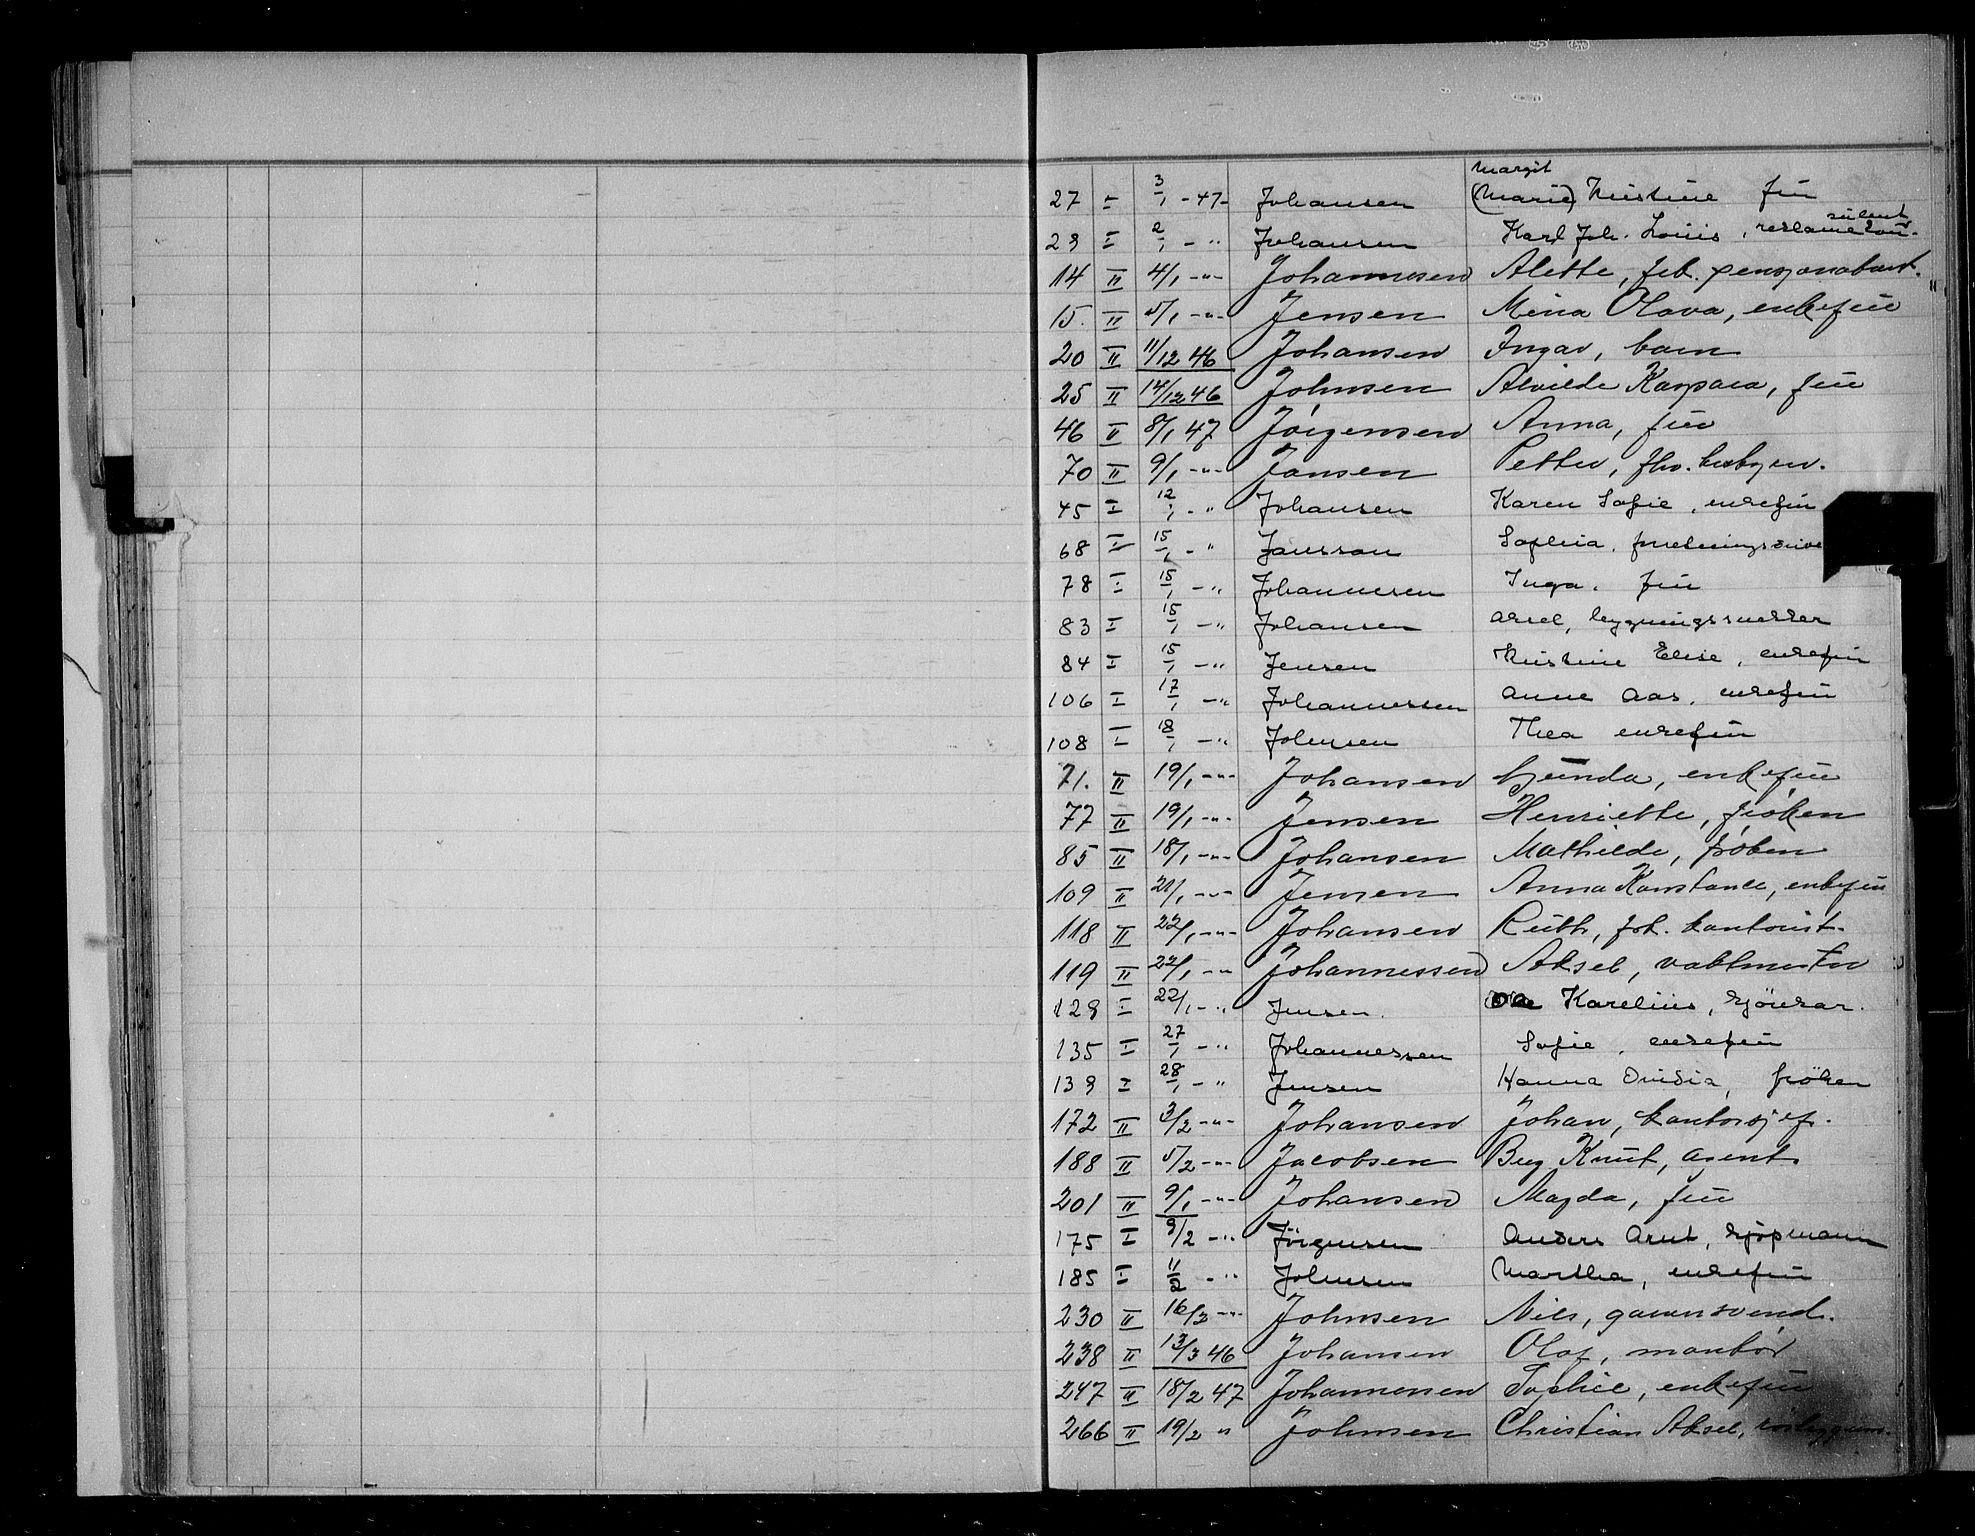 Margit
27 I 3/1 - 47 - Johansen (Marie) Kristine fru
sulent
29 I 2/1 - " Johansen Karl Joh. Louis, reklamekon-
14 II 4/1 -"- Johannesen Alette, feb. pensjonatbest.
15. II 5/1 -"- Jensen Mina Olava, enkefru
20 II 11/12 46 Johansen Ingar, barn
25 II 14/12 46 Johnsen Alvilde Kaspara, fru
46 II 8/1 47 Jörgensen Anna, fru
70 II 9/1 -"- Jansen Petter, fhv.
45 I 12/1 - " Johansen Karen Sofie, enkefru
68 I 15/1 - " Jansson Sophia, forretningsdrive
78 I 15/1 - " Johannesen Inga, fru
83 I 15/1 - " Johansen Aksel, bygningssnekker
84 I 15/1 - " Jensen Kristine Elise, enkefru
106 I 17/1 - " Johannessen Anne Aas, enkefru
108 I 18/1 - " Johnsen Thea enkefru
71. II 19/1 -"- Johansen Gunda, enkefru
77 II 19/1 -"- Jensen Henriette, fröken
85 II 18/1 -"- Johansen Mathilde, fröken
109 II 21/1 -"- Jensen Anna Konstance, enkefru
118 II 22/1 -"- Johansen Ruth, frk. kontorist.
119 II 22/1 -" Johannessen Aksel, vaktmester
129 I 22/1 - " Jensen. Ole Karelius, kjörekar.
135 I 27/1 - " Johannessen Sofie, enkefru
139 I 28/1 - " Jensen Hanna Ovidia, fröken
172 II 3/2 -"- Johansen Johan, kontorsjef.
188 II 5/2 -"- Jacobsen Birg Knut, agent
201 II 9/1 -"- Johansen Magda, fru
175 I 9/2 - " Jörgensen Anders Arnt, kjöpmann
185 I 11/2 - " Johnsen Martha, enkefru
230 II 16/2 -"- Johnsen Nils, garversvend.
238 II 13/3 46 Johansen Olaf, montör
247 II 18/2 47 Johannesen Sophie, enkefru
266 II 19/2 " Johnsen Christian Aksel,